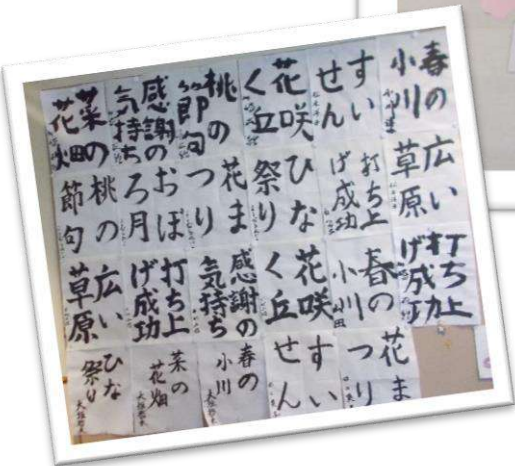 春の
小川
すい
せん
花咲
く丘
桃の
節句
感謝の
気持ち
菜の
花畑
広い
草原
打ち上
げ成功
ひな
祭り
花ま
つり
おぼ
ろ月
桃の
節句
打ち上
げ成功
春の
小川
花咲
く丘
感謝の
気持ち
打ち上
げ成功
広い
草原
花ま
つり
すい
せん
春の
小川
菜の
花畑
ひな
祭り